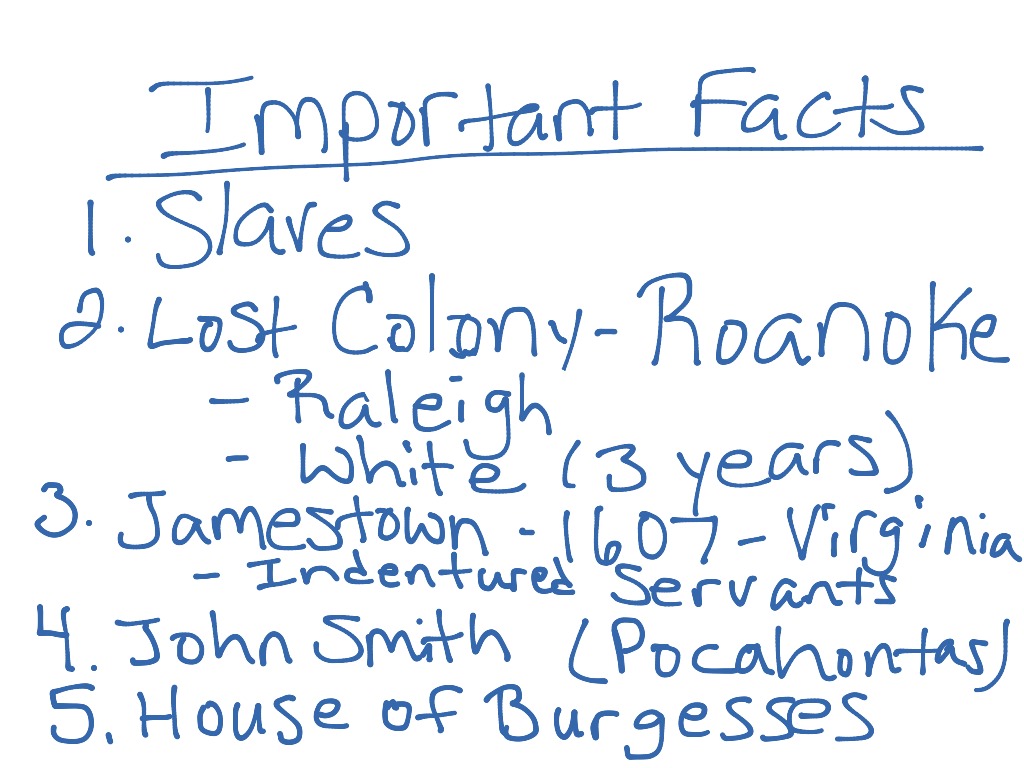 Important Facts
1. Slaves
2. Lost Colony - Roanoke
- Raleigh
- White (3 years)
3. Jamestown - 1607 - Virginia
- Indentured Servants
4. John Smith (Pocahontas)
5. House of Burgesses